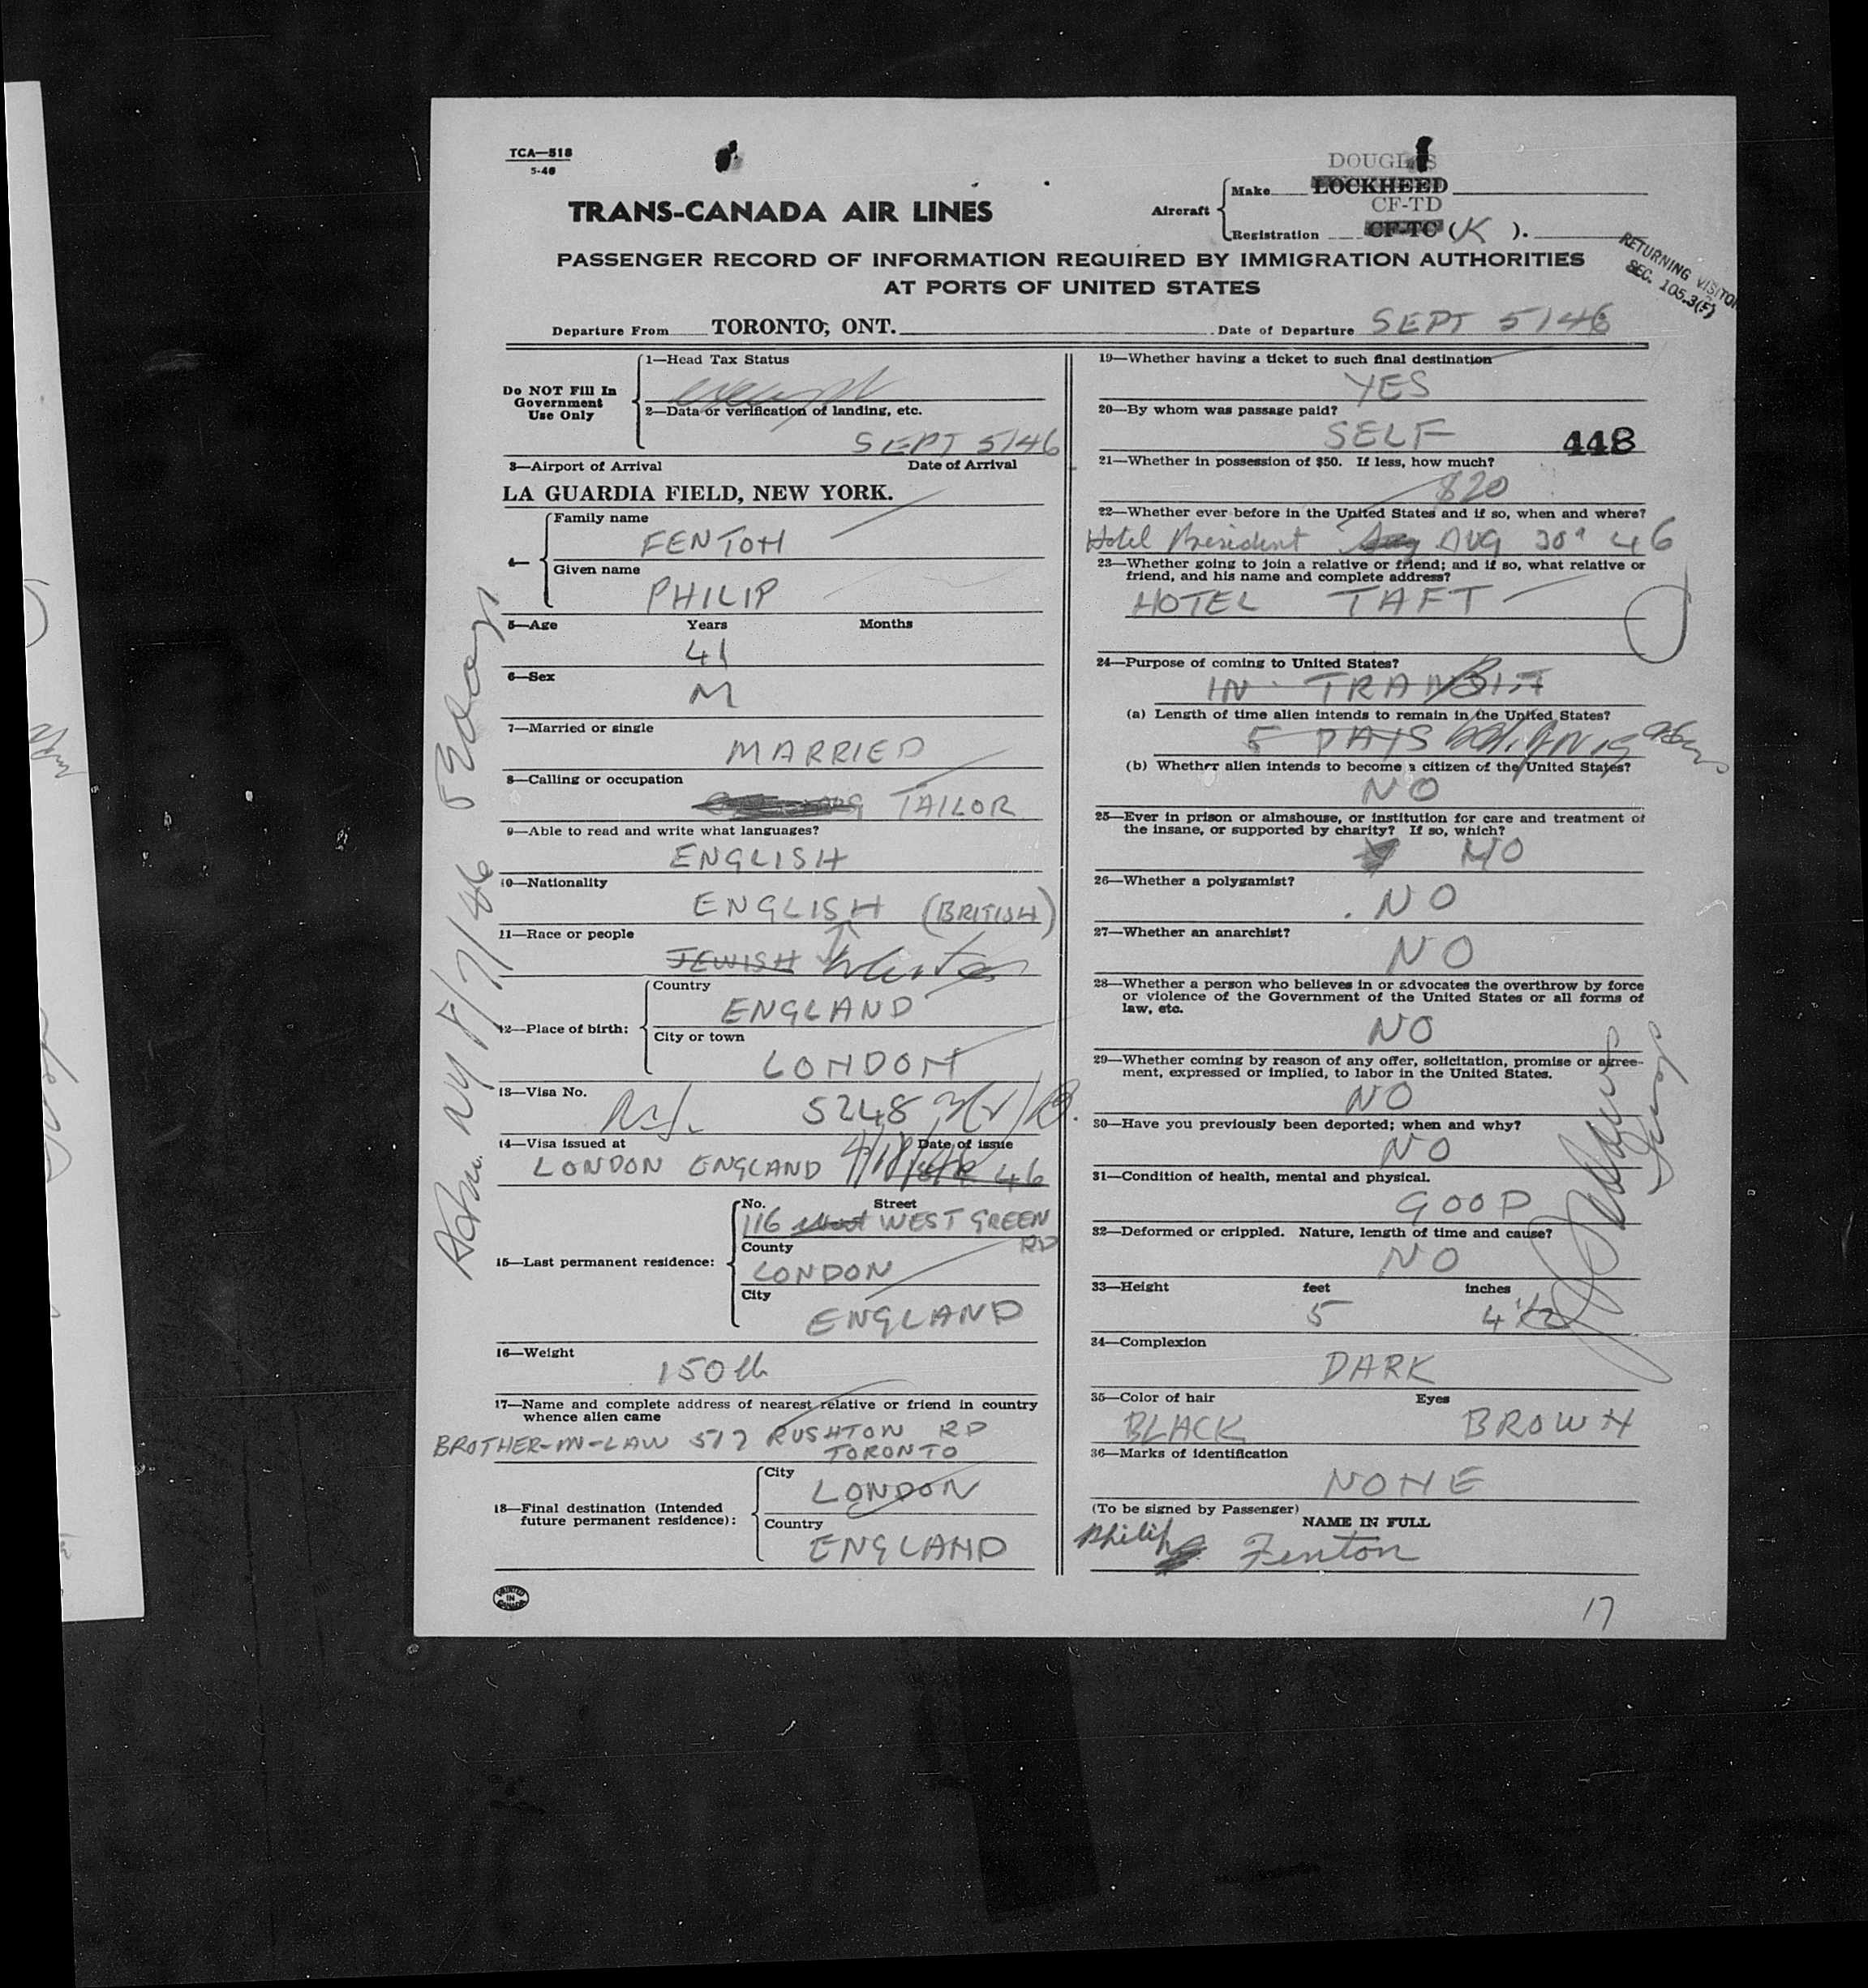 TCA—518
5-46
DOUGLAS
Make LOCKHEED
TRANS-CANADA AIR LINES
Aircraft
CF-TD
Registration CF-TC (K ).
PASSENGER RECORD OF INFORMATION REQUIRED BY IMMIGRATION AUTHORITIES
AT PORTS OF UNITED STATES
RETURNING VISITOR
SEC. 105.3(F)
Departure From TORONTO, ONT. Date of Departure SEPT 5/46
Do NOT Fill In
Government
Use Only
1—Head Tax Status
2—Data or verification of landing, etc.
SEPT 5/46
3—Airport of Arrival Date of Arrival
LA GUARDIA FIELD, NEW YORK.
4—
Family name
FENTON
Given name
PHILIP
5—Age Years Months
41
6—Sex
M
7—Married or single
MARRIED
8—Calling or occupation
TAILOR
9—Able to read and write what languages?
ENGLISH
10—Nationality
ENGLISH (BRITISH)
11—Race or people
JEWISH
12—Place of birth:
Country
ENGLAND
City or town
LONDON
13—Visa No.
5248
14—Visa issued at Date of issue
LONDON ENGLAND 46
15—Last permanent residence:
No. Street
116 WEST GREEN
RD
County
LONDON
City
ENGLAND
16—Weight
150 lb
17—Name and complete address of nearest relative or friend in country
whence alien came
BROTHER-IN-LAW 517 RUSHTON RD
TORONTO
18—Final destination (Intended
future permanent residence):
City
LONDON
Country
ENGLAND
PRINTED
IN
CANADA
19—Whether having a ticket to such final destination
YES
20—By whom was passage paid?
SELF 448
21—Whether in possession of $50. If less, how much?
$20
22—Whether ever before in the United States and if so, when and where?
Hotel President AUG 30 46
23—Whether going to join a relative or friend; and if so, what relative or
friend, and his name and complete address?
HOTEL TAFT
24—Purpose of coming to United States?
IN TRANSIT
(a) Length of time alien intends to remain in the United States?
5 DAYS
(b) Whether alien intends to become a citizen of the United States?
NO
25—Ever in prison or almshouse, or institution for care and treatment of
the insane, or supported by charity? If so, which?
NO
26—Whether a polygamist?
NO
27—Whether an anarchist?
NO
28—Whether a person who believes in or advocates the overthrow by force
or violence of the Government of the United States or all forms of
law, etc.
NO
29—Whether coming by reason of any offer, solicitation, promise or agree-
ment, expressed or implied, to labor in the United States.
NO
30—Have you previously been deported; when and why?
NO
31—Condition of health, mental and physical.
GOOD
32—Deformed or crippled. Nature, length of time and cause?
NO
33—Height feet inches
5 4 1/2
34—Complexion
DARK
35—Color of hair Eyes
BLACK BROWN
36—Marks of identification
NONE
(To be signed by Passenger)
NAME IN FULL
Philip Fenton
17